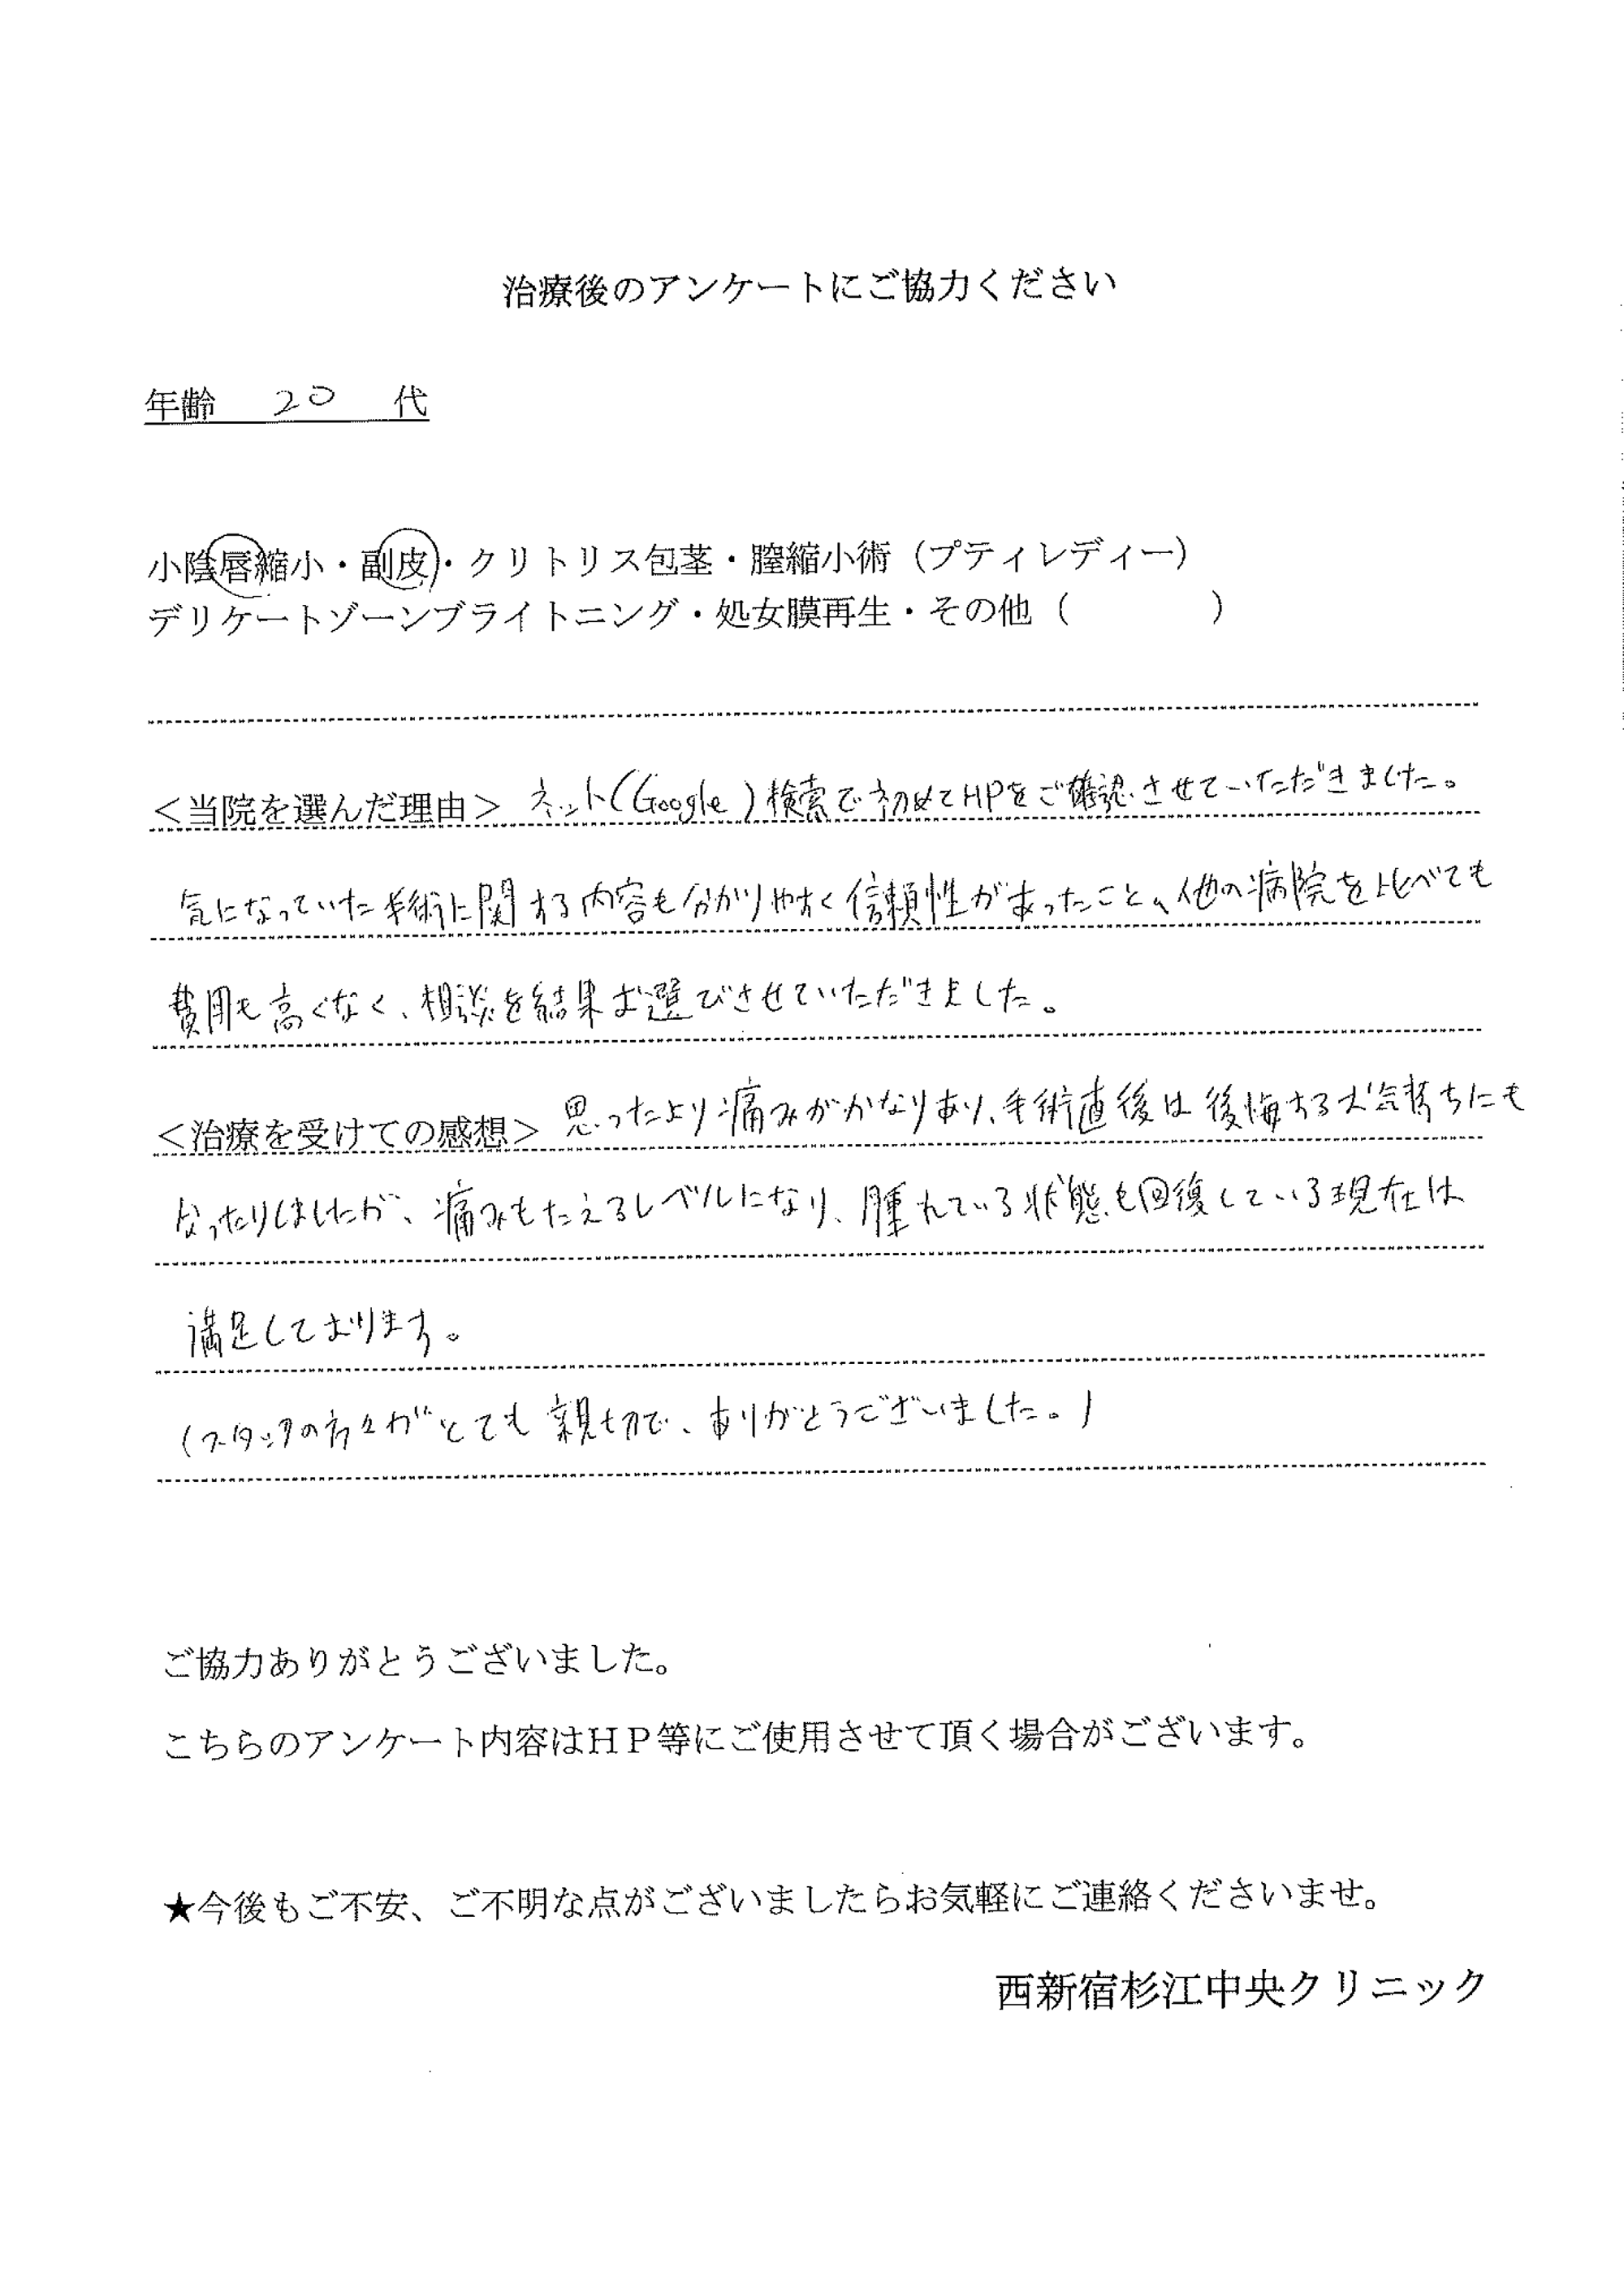 治療後のアンケートにご協力ください
年齢 20 代
小陰唇縮小・副皮・クリトリス包茎・膣縮小術（プティレディー）
デリケートゾーンブライトニング・処女膜再生・その他（ ）
＜当院を選んだ理由＞ ネット(Google)検索で初めてHPをご確認させていただきました。
気になっていた手術に関する内容も分かりやすく信頼性があったこと、他の病院を比べても
費用も高くなく、相談を結果お選びさせていただきました。
＜治療を受けての感想＞ 思ったより痛みがかなりあり、手術直後は後悔する気持ちにも
なったりしましたが、痛みもたえるレベルになり、腫れている状態も回復している現在は
満足しております。
(スタッフの方々がとても親切で、ありがとうございました。)
ご協力ありがとうございました。
こちらのアンケート内容はＨＰ等にご使用させて頂く場合がございます。
★今後もご不安、ご不明な点がございましたらお気軽にご連絡くださいませ。
西新宿杉江中央クリニック